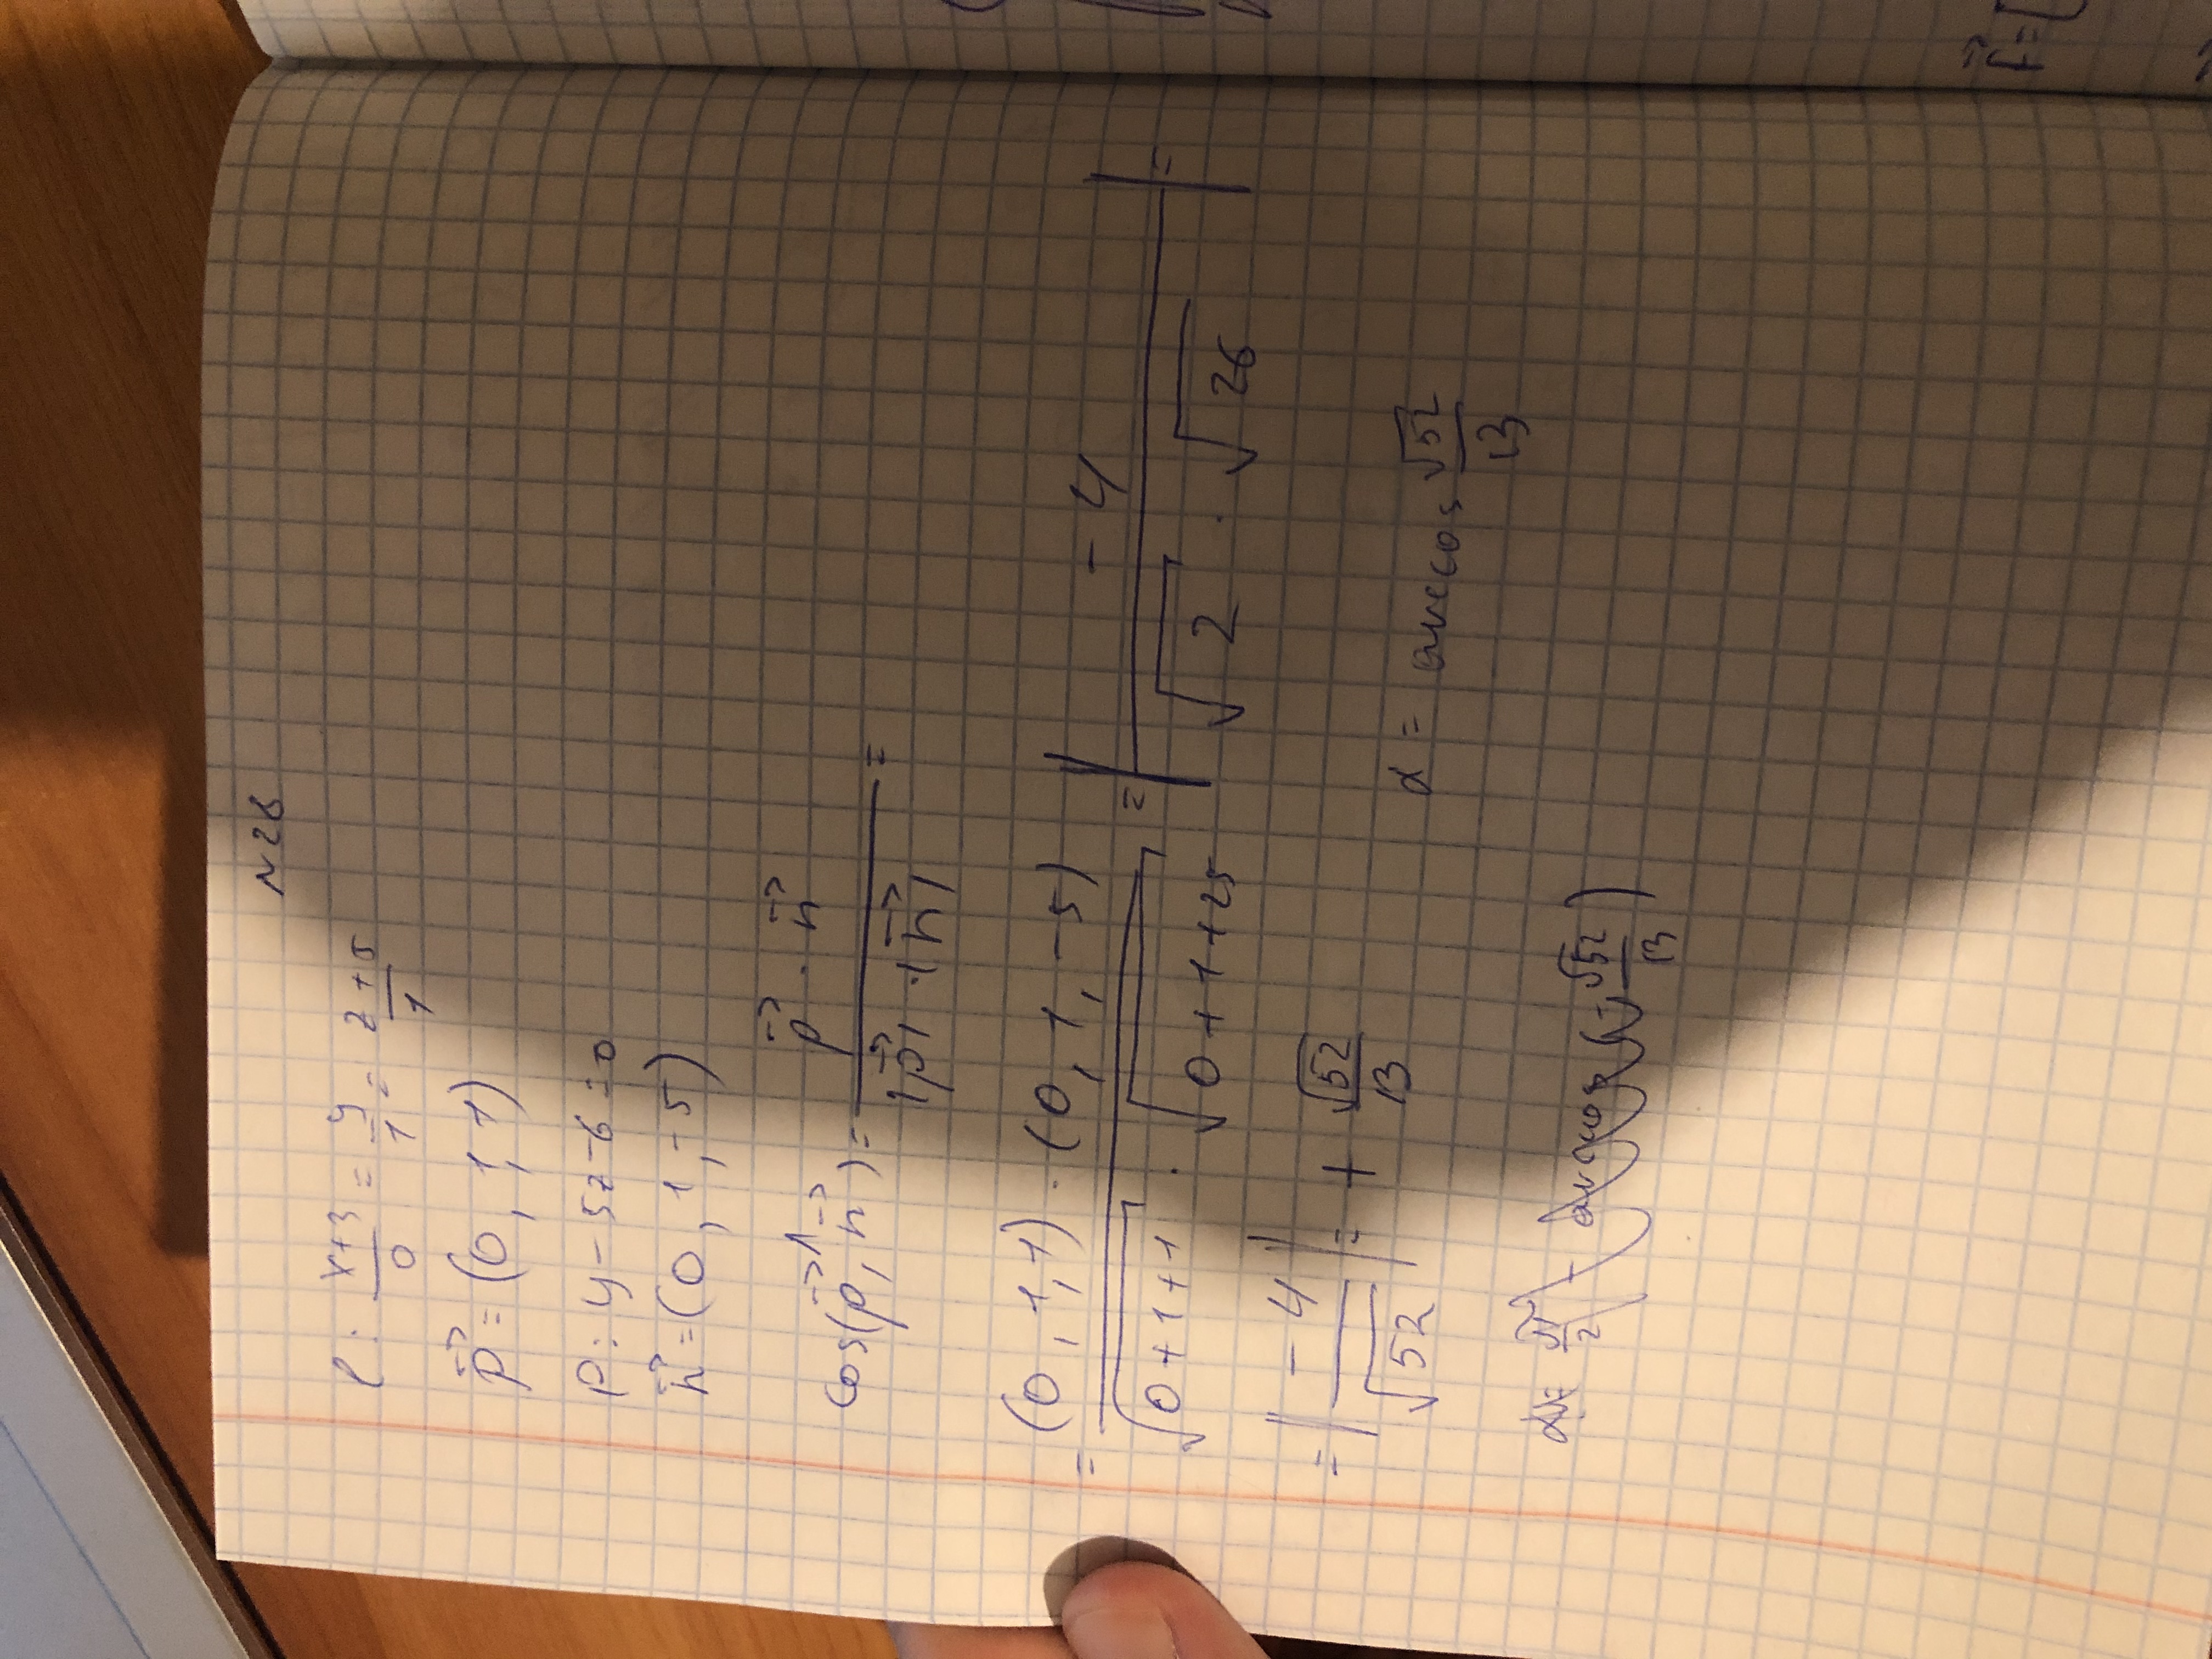 N 28
l: x+3/0 = y/1 = z+5/1
p⃗ = (0, 1, 1)
P: y - 5z - 6 = 0
n⃗ = (0, 1, -5)
cos(p⃗,^ n⃗) = p⃗ · n⃗ / |p⃗| · |n⃗| =
= (0, 1, 1) · (0, 1, -5) / √0+1+1 · √0+1+25 = | -4 / √2 · √26 | =
= | -4 / √52 | = + √52/13
α = arccos √52/13
α = π/2 - arccos (- √52/13)